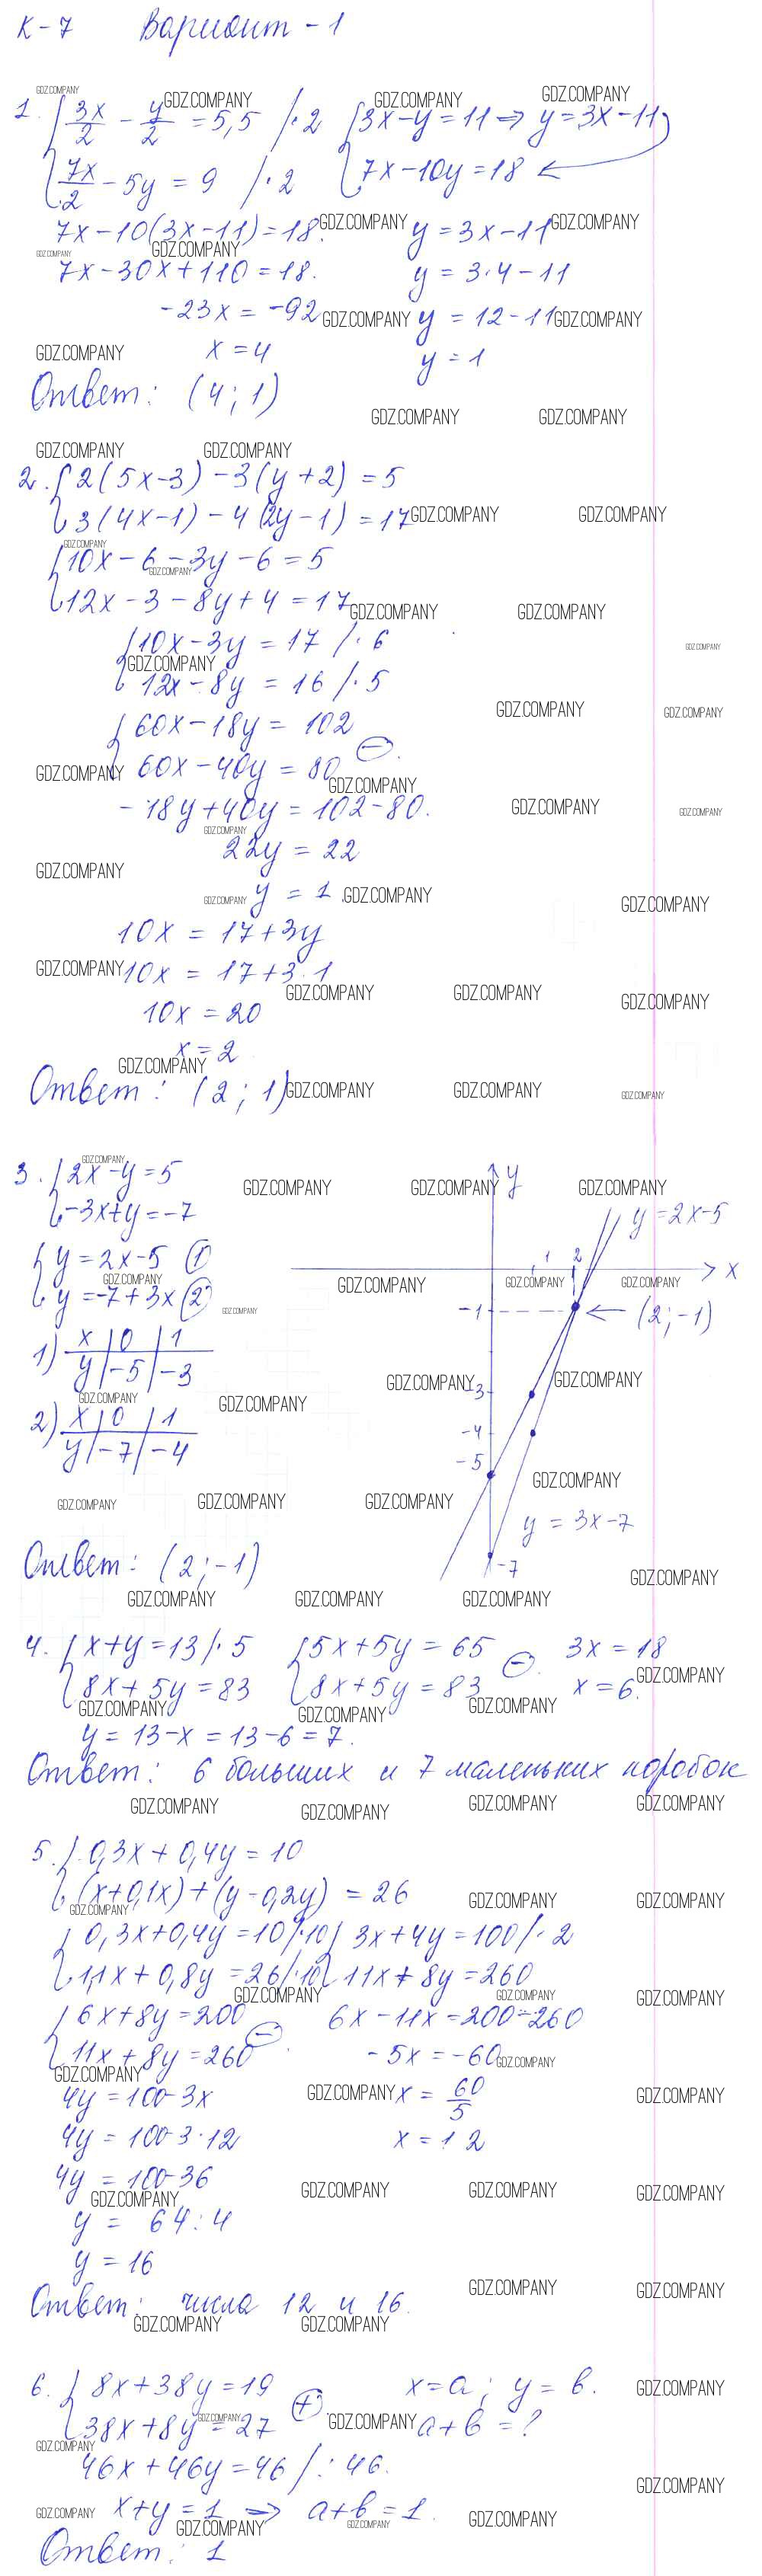 К-7 Вариант-1
1. { 3x/2 - y/2 = 5,5 /·2 { 3x-y=11 => y=3x-11
{ 7x/2 - 5y = 9 /·2 { 7x-10y=18
7x-10(3x-11)=18. y=3x-11
7x-30x+110=18. y=3·4-11
-23x=-92 y=12-11
x=4 y=1
Ответ: (4;1)
2. { 2(5x-3)-3(y+2)=5
{ 3(4x-1)-4(2y-1)=17
{ 10x-6-3y-6=5
{ 12x-3-8y+4=17
{ 10x-3y=17 /·6
{ 12x-8y=16 /·5
{ 60x-18y=102
{ 60x-40y=80 (-).
-18y+40y=102-80.
22y=22
y=1
10x=17+3y
10x=17+3·1
10x=20
x=2
Ответ: (2;1)
3. { 2x-y=5
{ -3x+y=-7
{ y=2x-5 (1)
{ y=-7+3x (2)
1) x | 0 | 1
y | -5 | -3
2) x | 0 | 1
y | -7 | -4
y
y=2x-5
1 2
x
-1 (2;-1)
-3
-4
-5
y=3x-7
-7
Ответ: (2;-1)
4. { x+y=13 /·5 { 5x+5y=65 (-). 3x=18
{ 8x+5y=83 { 8x+5y=83 x=6.
y=13-x=13-6=7.
Ответ: 6 больших и 7 маленьких коробок
5. { 0,3x+0,4y=10
{ (x+0,1x)+(y-0,2y)=26
{ 0,3x+0,4y=10 /·10 { 3x+4y=100 /·2
{ 1,1x+0,8y=26 /·10 { 11x+8y=260
{ 6x+8y=200 (-). 6x-11x=200-260
{ 11x+8y=260 -5x=-60
4y=100-3x x=60/5
4y=100-3·12 x=12
4y=100-36
y=64:4
y=16
Ответ: числа 12 и 16.
6. { 8x+38y=19 (+). x=a; y=b.
{ 38x+8y=27 a+b=?
46x+46y=46 /:46.
x+y=1 => a+b=1.
Ответ: 1
GDZ.COMPANY